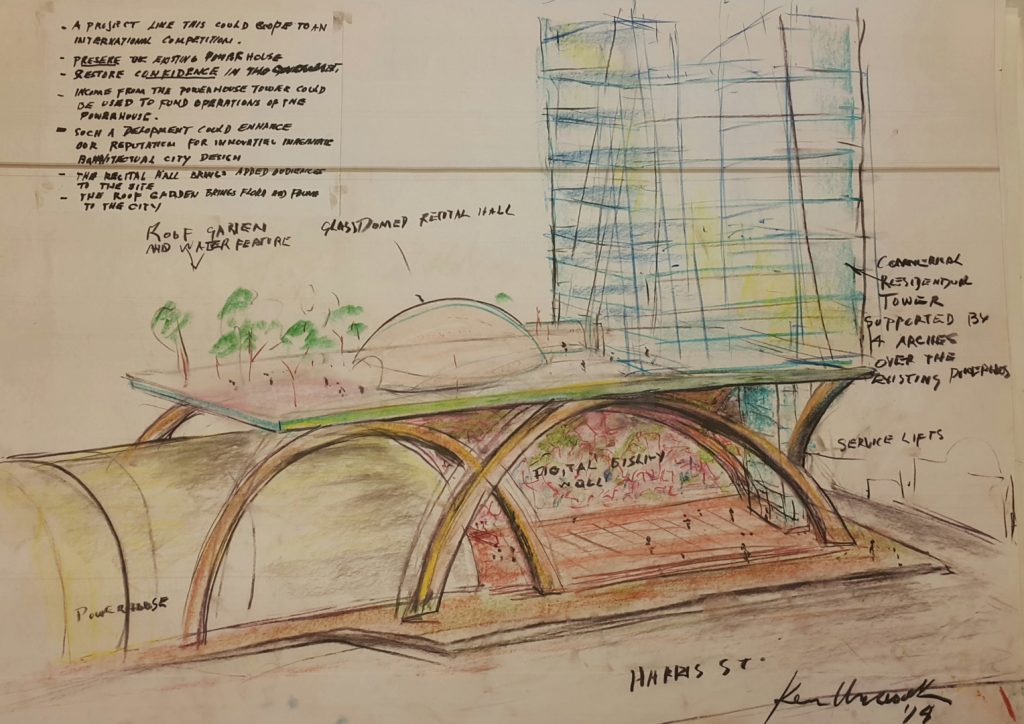 - A PROJECT LIKE THIS COULD SCOPE TO AN
INTERNATIONAL COMPETITION.
- PRESERE THE EXISTING POWERHOUSE
- RESTORE CONFIDENCE IN THE GOVERNMENT.
- INCOME FROM THE POWERHOUSE TOWER COULD
BE USED TO FUND OPERATIONS OF THE
POWERHOUSE.
- SUCH A DELOPMENT COULD ENHANCE
OUR REPUTATION FOR
CITY DESIGN
- THE RECITAL HALL BRINGS ADDED AUDIENCES
TO THE SITE
- THE ROOF GARDEN BRINGS FLORA AND FAUNA
TO THE CITY
ROOF GARDEN
AND WATER FEATURE
GLASS DOMED RECITAL HALL
COMMERCIAL
RESIDENTIAL
TOWER
SUPPORTED BY
4 ARCHES
OVER THE
EXISTING POWERHOUSE
SERVICE LIFTS
DIGITAL DISPLAY
WALL
POWERHOUSE
HARRIS ST.
Ken